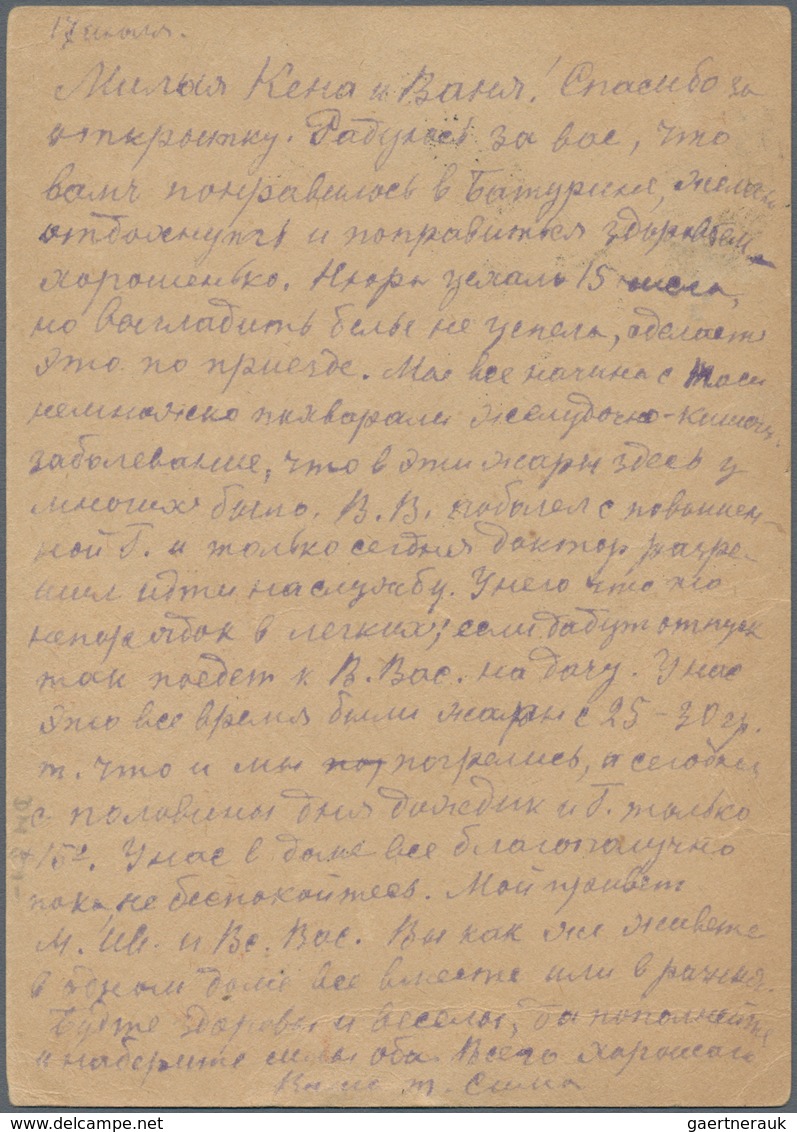 17 июля.
Милыя Кена и Ваня! Спасибо за
открытку. Радуюсь за вас, что
вамъ понравилось в Батурине, желаю
отдохнуть и поправиться здоровьем
хорошенько. Нюра уехала 15 числа,
но выгладить белье не успела, сделает
это по приезде. Мы все начиная с Таси
немножко похварали желудочно-кишечн.
заболевание, что в эти жары здесь у
многих было. В.В. поболел с повышен
ной Т. и только сегодня доктор разре-
шил идти на службу. У него что то
непорядок в легких; если дадут отпуск
так поедет к В. Вас. на дачу. У нас
это все время были жары с 25-30 гр.
т. что и мы погрелись, а сегодня
с половины дня дождик и Т. только
15°. У нас в доме все благополучно
пока, не беспокойтесь. Мой привет
М. Ив. и Вс. Вас. Вы как же живете
в одном доме все вместе или в разных.
Будте здоровы и веселы, да пополнейте
и наберите силы оба. Всего хорошаго
Ваша т. Сима
gaertnerauk